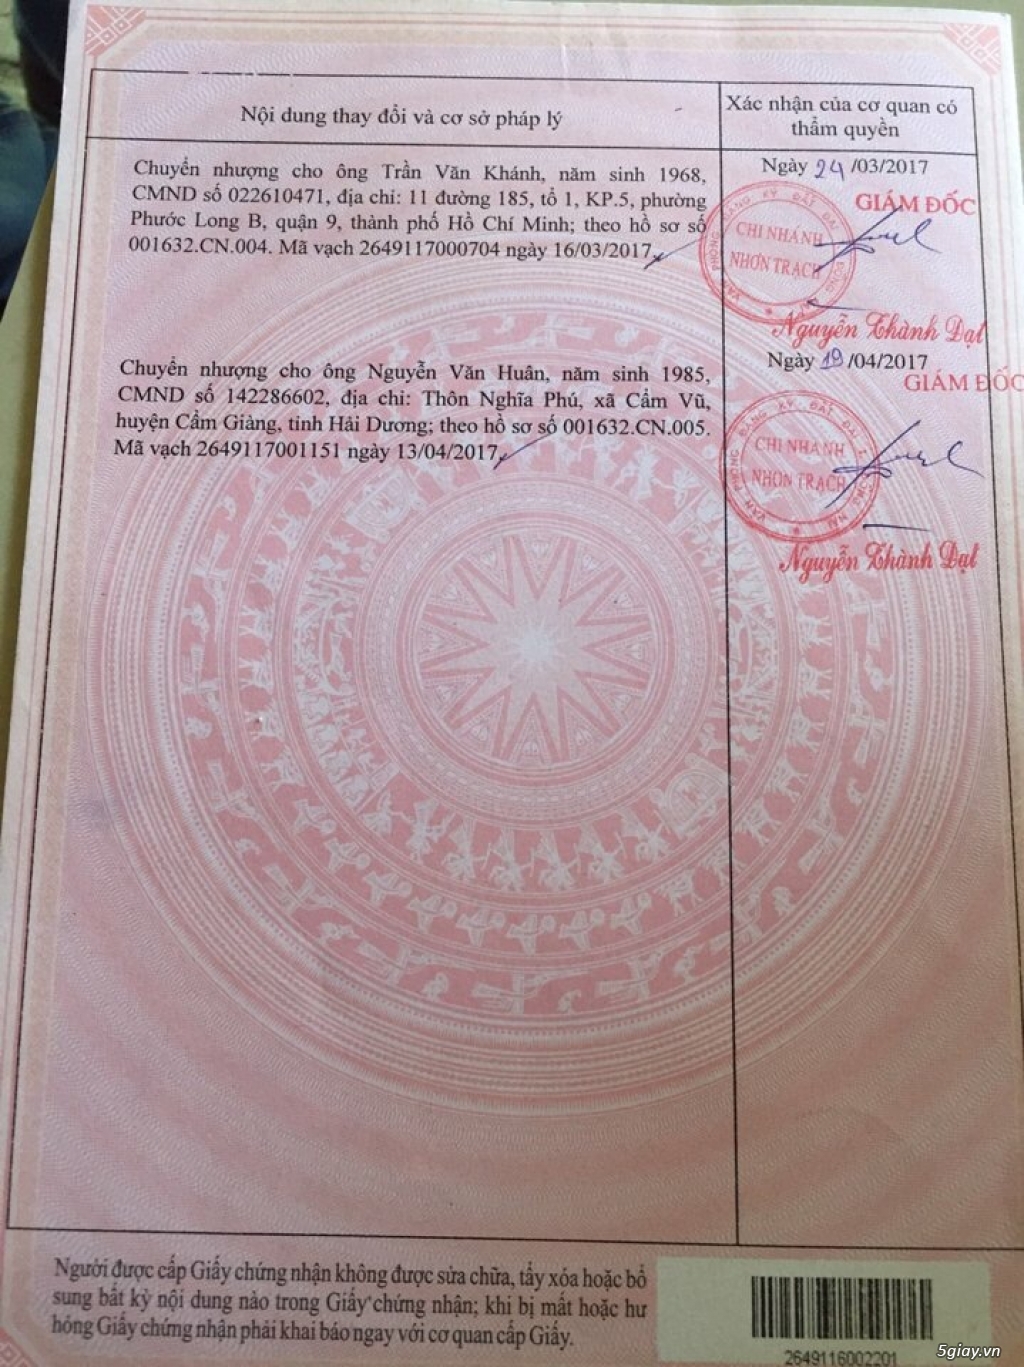 Nội dung thay đổi và cơ sở pháp lý
Xác nhận của cơ quan có
thẩm quyền
Chuyển nhượng cho ông Trần Văn Khánh, năm sinh 1968,
CMND số 022610471, địa chỉ: 11 đường 185, tổ 1, KP.5, phường
Phước Long B, quận 9, thành phố Hồ Chí Minh; theo hồ sơ số
001632.CN.004. Mã vạch 2649117000704 ngày 16/03/2017
Ngày 24 /03/2017
GIÁM ĐỐC
VĂN PHÒNG ĐĂNG KÝ ĐẤT ĐAI
CHI NHÁNH
NHƠN TRẠCH
Nguyễn Thành Đạt
Chuyển nhượng cho ông Nguyễn Văn Huân, năm sinh 1985,
CMND số 142286602, địa chỉ: Thôn Nghĩa Phú, xã Cẩm Vũ,
huyện Cẩm Giàng, tỉnh Hải Dương; theo hồ sơ số 001632.CN.005.
Mã vạch 2649117001151 ngày 13/04/2017
Ngày 19 /04/2017
GIÁM ĐỐC
VĂN PHÒNG ĐĂNG KÝ ĐẤT ĐAI
CHI NHÁNH
NHƠN TRẠCH
Nguyễn Thành Đạt
Người được cấp Giấy chứng nhận không được sửa chữa, tẩy xóa hoặc bổ
sung bất kỳ nội dung nào trong Giấy chứng nhận; khi bị mất hoặc hư
hỏng Giấy chứng nhận phải khai báo ngay với cơ quan cấp Giấy.
2649116002201
5giay.vn